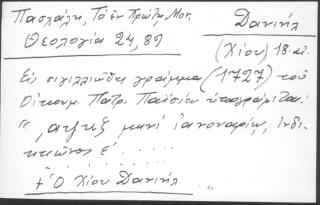 Πασχάλη, Τὸ ἐν Τρώτη, Μον.
Δανιήλ
Θεολογία 24, 89
(Χίου) 18. αἰ.
Εἰς σιγιλλιῶδες γράμμα (1727) τοῦ
Οἰκουμ. Πατρ. Παϊσίου ὑπογράφεται:
" ͵αψκζ μηνὶ ἰανουαρίῳ, ἰνδι-
κτιῶνος ε΄ . . . . .
+ Ὁ Χίου Δανιήλ . . "